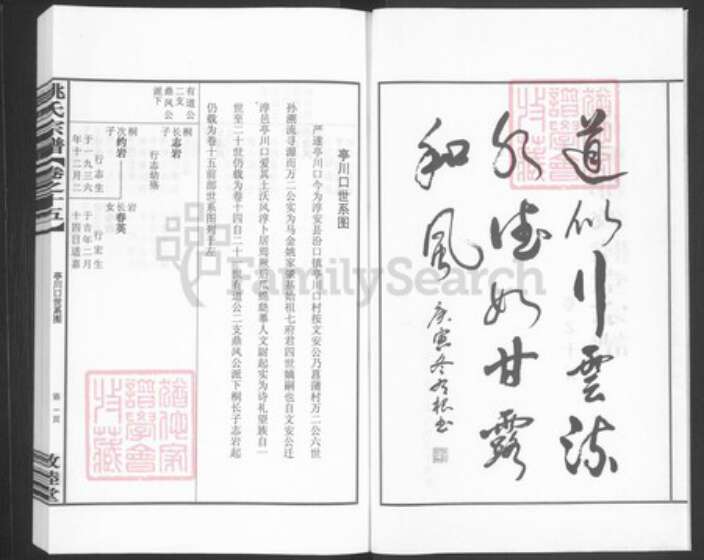 道似行雲流
水德如甘露
和風
庚寅冬
亭川口世系图
严遵亭川口今为淳安县汾口镇亭川口村按文安公乃菖蒲村万二公六世
孙溯流寻源而万二公实为马金姚家肇基始祖七府君四世嫡嗣也自文安公迁
淳邑亭川口爱其土沃风淳卜居焉厥后
人文蔚起实为诗礼望族自一
世至二十世仍载为卷十四自二十一世有道公二支鼎风公派下桐长子志岩起
仍载为卷十五前部世系图列于左
有道公
二支
鼎风公
派下
桐长子
志岩
行志幼殇
桐次子
约岩
行志生
于一九三六
年十二月二
岩长女
春英
行宏生
于吉年二月
十四日适嘉
姚氏宗谱
卷之十五
亭川口世系图
第一页
敦睦堂
FamilySearch